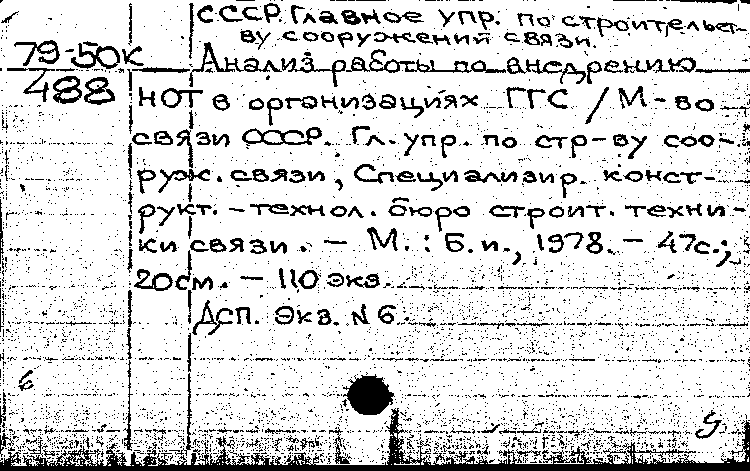 СССР. Главное упр. по строительст-
ву сооружений связи.
79-50к
488
Анализ работы по внедрению
НОТ в организациях ГГС / М-во
связи СССР. Гл. упр. по стр-ву соо-
руж. связи, Специализир. конст-
рукт.-технол. бюро строит. техни-
ки связи. - М. : Б.и., 1978. - 47с.;
20см. - 110 экз.
Дсп. Экз. N 6.